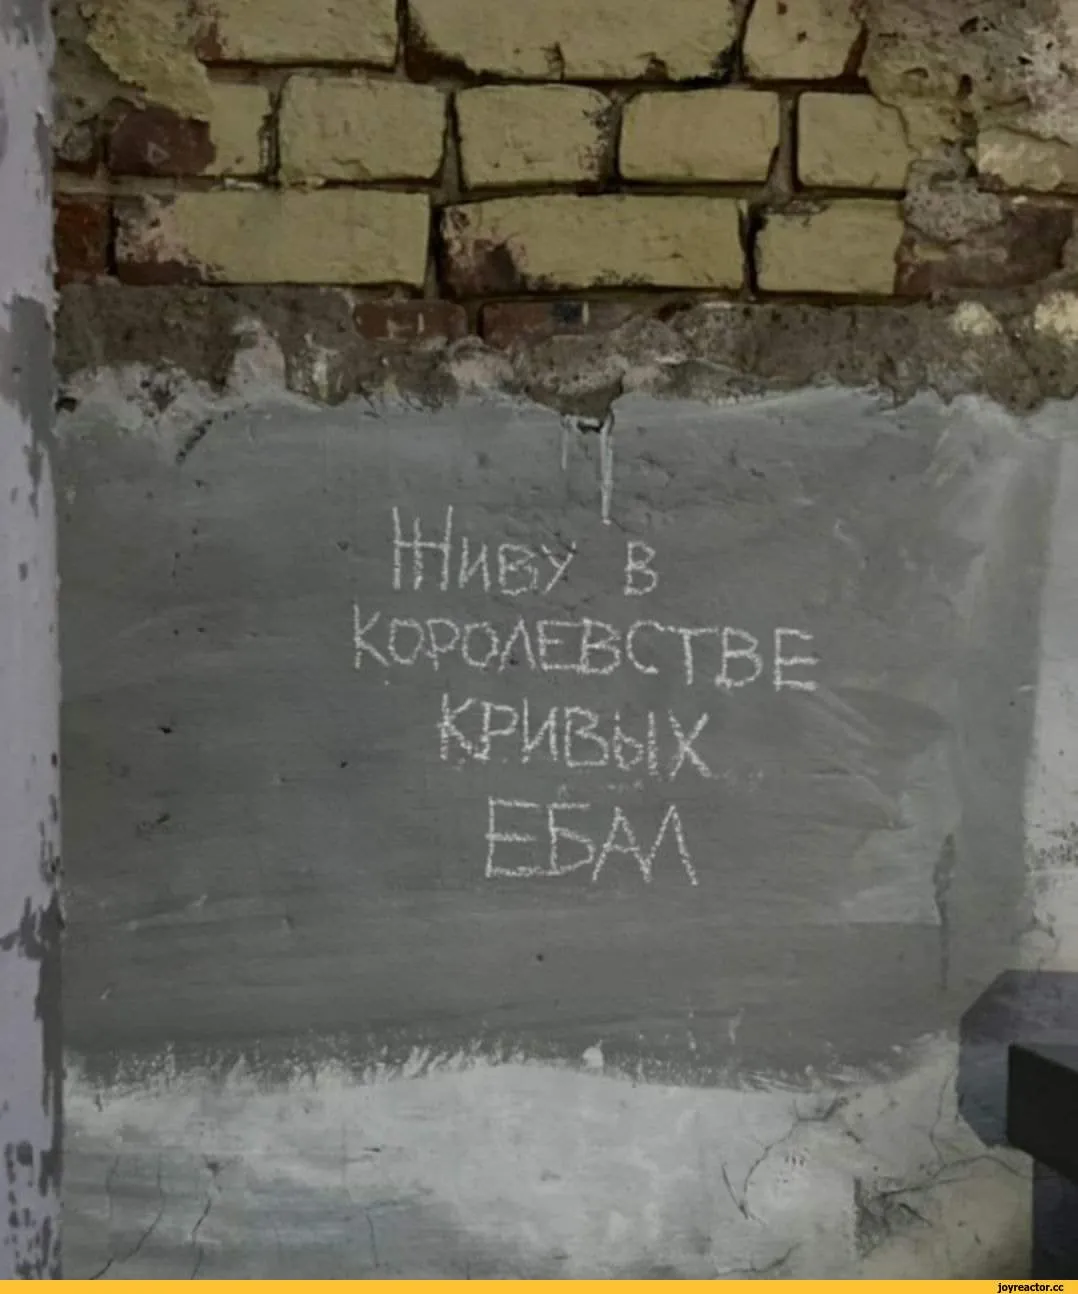 Живу в
королевстве
кривых
ебал
joyreactor.cc